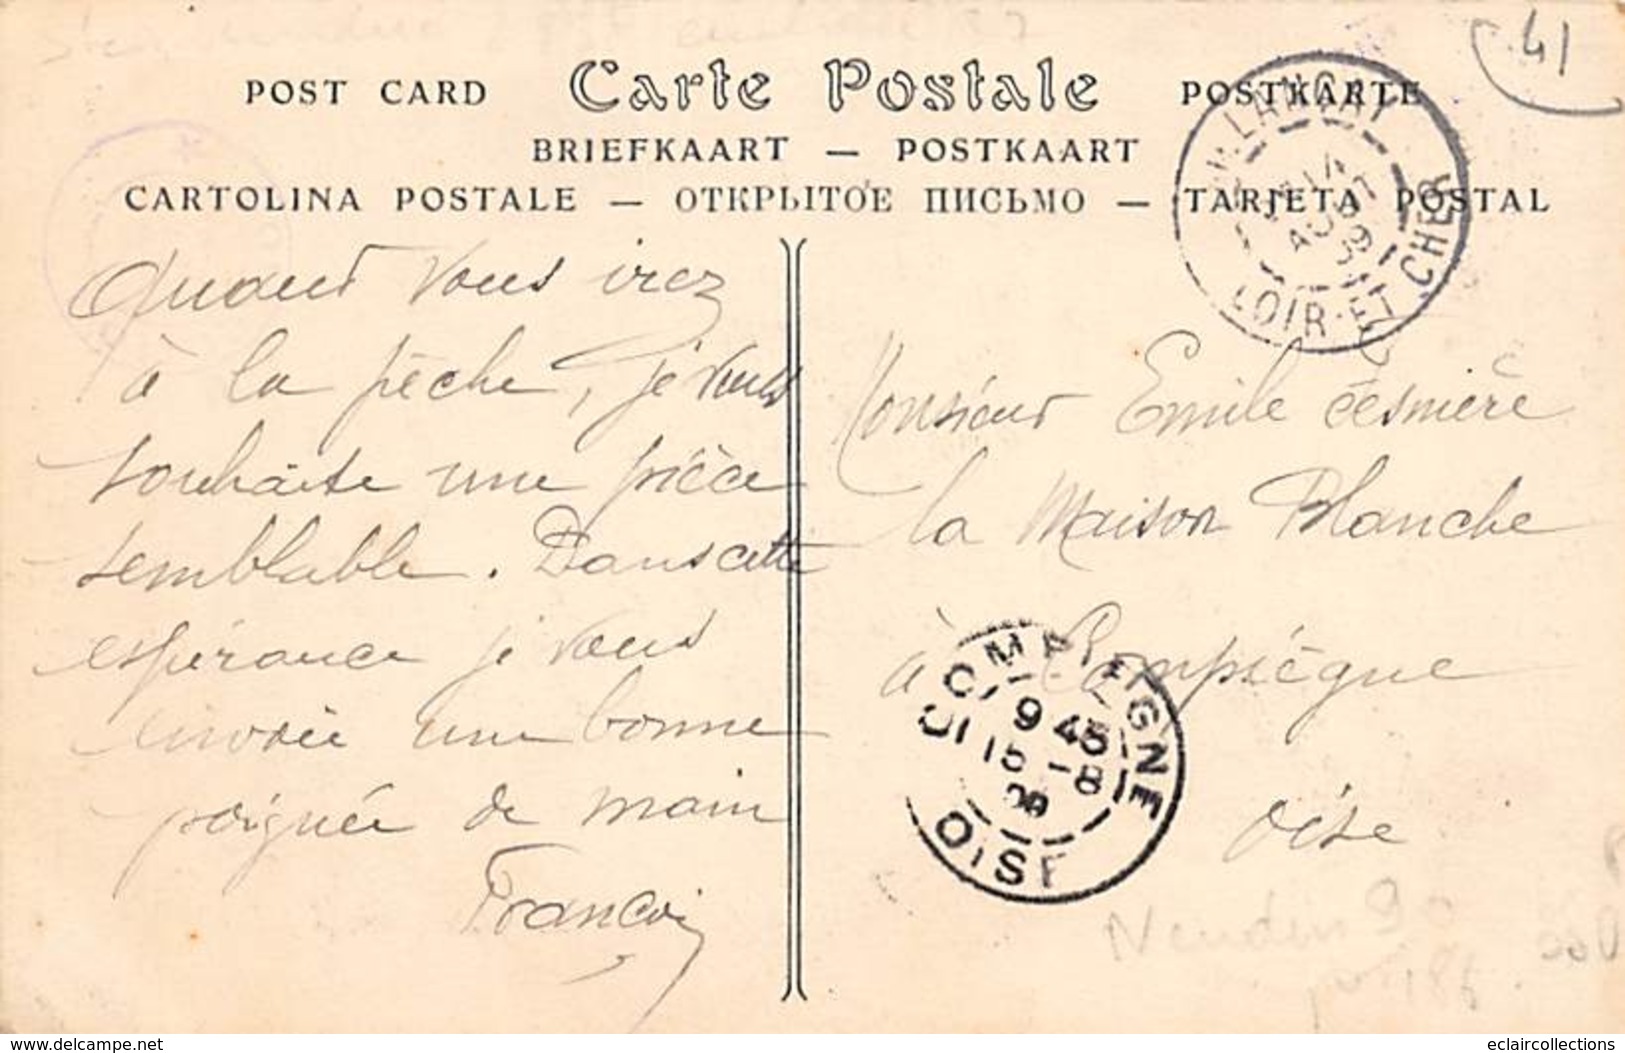 41
POST CARD Carte Postale POSTKARTE
BRIEFKAART — POSTKAART
CARTOLINA POSTALE — ОТКРЫТОЕ ПИСЬМО — TARJETA POSTAL
LOIR-ET-CHER
14
AOUT
Quand vous irez
à la pêche, je vous
souhaite une pièce
semblable. Dans cette
espérance je vous
envoie une bonne
poignée de main
François
Monsieur Emile Césmère
la Maison Blanche
à Compiègne
Oise
COMPIEGNE
9 45
15 -8
09
OISE
delcampe.net
eclaircollections